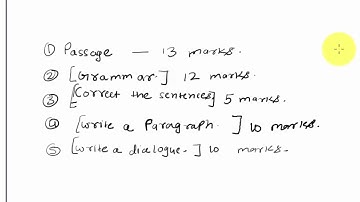 ① Passage — 13 marks.
② [Grammar.] 12 marks.
③ [Correct the sentences] 5 marks.
④ [Write a Paragraph. ] 10 marks.
⑤ [Write a dialogue.] 10 marks.